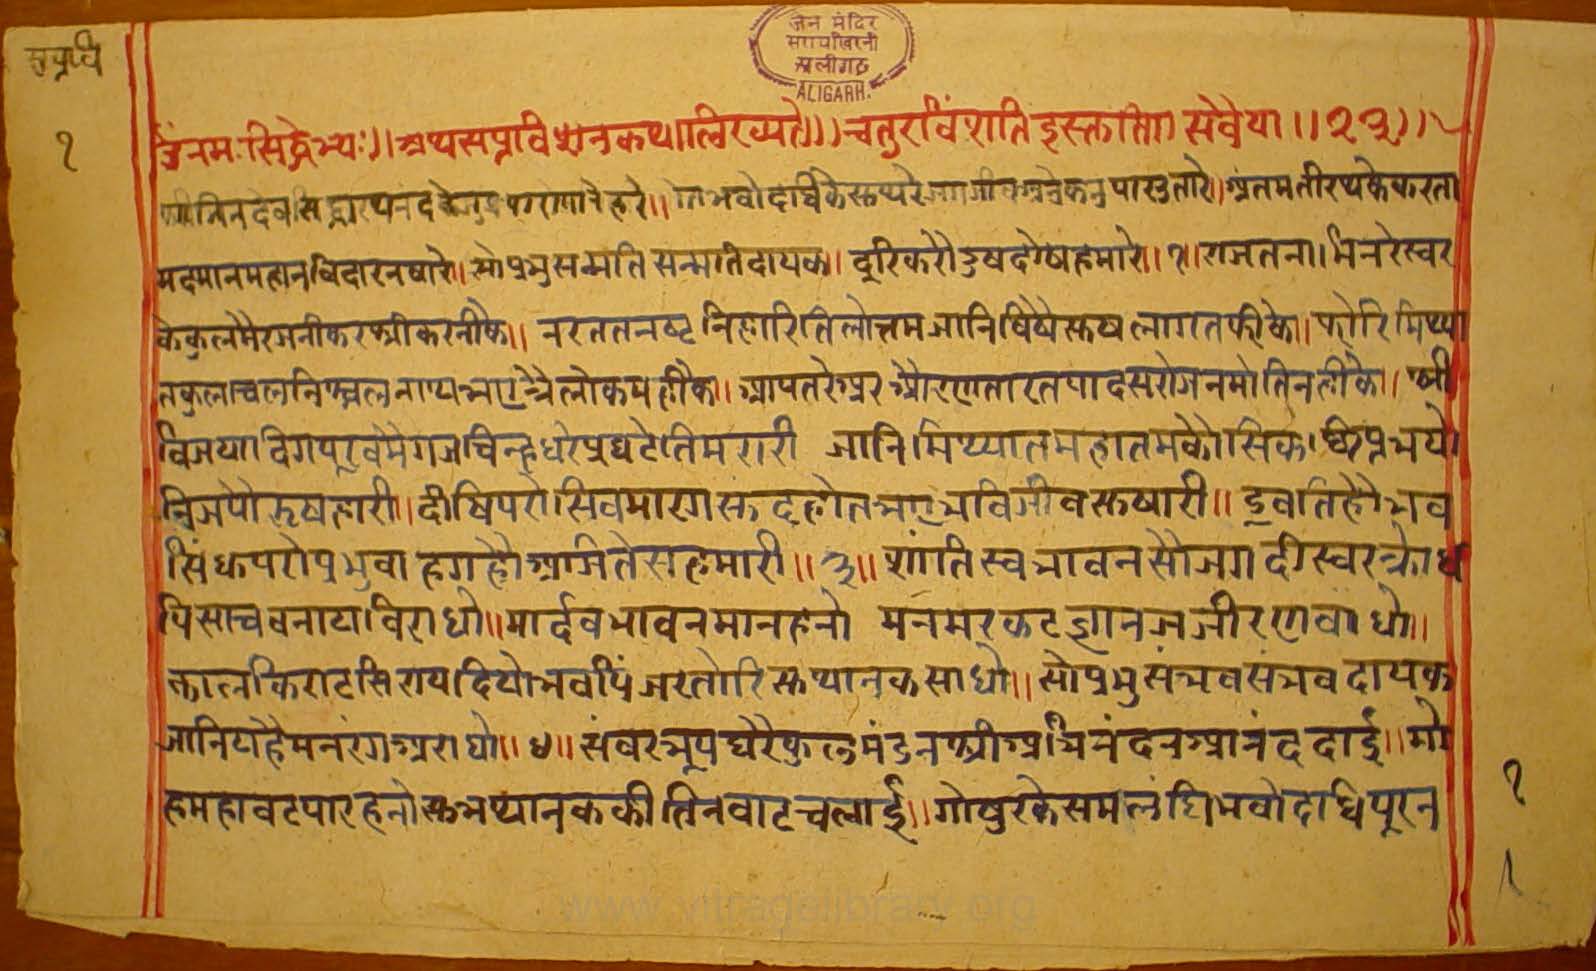 जैन मंदिर
सरायखिरनी
अलीगढ़
ALIGARH.
सप्तव्य
१
ॐनमःसिद्धेभ्यः।।अथसप्तविशनकथालिख्यते।।चतुरविंशति इस्तुति।।सवैया।।२३।।
श्रीजिनदेवसिद्धारथनंद भवोदधि अंतमतीरथकेकरता
मदमानमहानविदारनषारो।।सोप्रभुसन्मति सन्मतिदायक।।दूरिकरोदुषदोषहमारो।।१।।राजतनाभिनरेस्वर
केकुलमैरजनीकरश्रीकरनीकै।।नरततनष्टनिहारितिलोत्तमजानिविषैसुषलागतफीके।।फोरिमिथ्या
तकुलाचलनिश्चलनाथभएत्रैलोकपलीकै।।आपतरेअरऔरणतारतपादसरोजनमोतिनहीकै।।श्री
विजयादिगपूरवमैगजचिन्हधरेप्रघटेतिमरारी जानिमिथ्यातमहातमकौसिक।छिप्रभयो
निजपौरुषहारी।।दीषिपरोसिवमारगसुदहोतभएभविजीवसुषारी।।डूबतिहैभव
सिंधुपरोप्रभुवाहगहौअजितेसहमारी।।३।।शांतिस्वभावनसौजगदीस्वरक्रोध
पिसाचवनायविराधो।।मार्दवभावनमानहनो मनमरकटज्ञानजजीरणवाधो।।
कालकिराटसिरायदियोभवपिंजरतोरिसुथानकसाधो।।सोप्रभुसंभवसंभवदायक
जानियहैमनरंगअराधो।।४।।संवरभूपघरैकुलमंडनश्रीअभिनंदनआनंददाई।।मो
हमहावटपारहनोसुभथानककीतिनवाटचलाई।।गोषुरकेसमलंघिभवोदधिपूरन
१
www.vitragelibrary.org